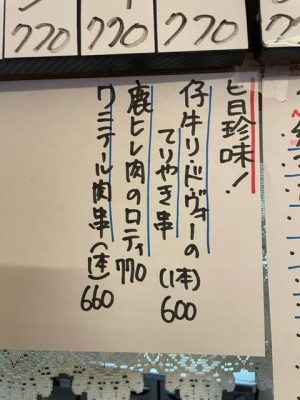 770
770
770
旨珍味!
仔牛リ・ド・ヴォーの
てりやき串
(1本)
600
鹿ヒレ肉のロティ
770
ワニテール肉串(1本)
660